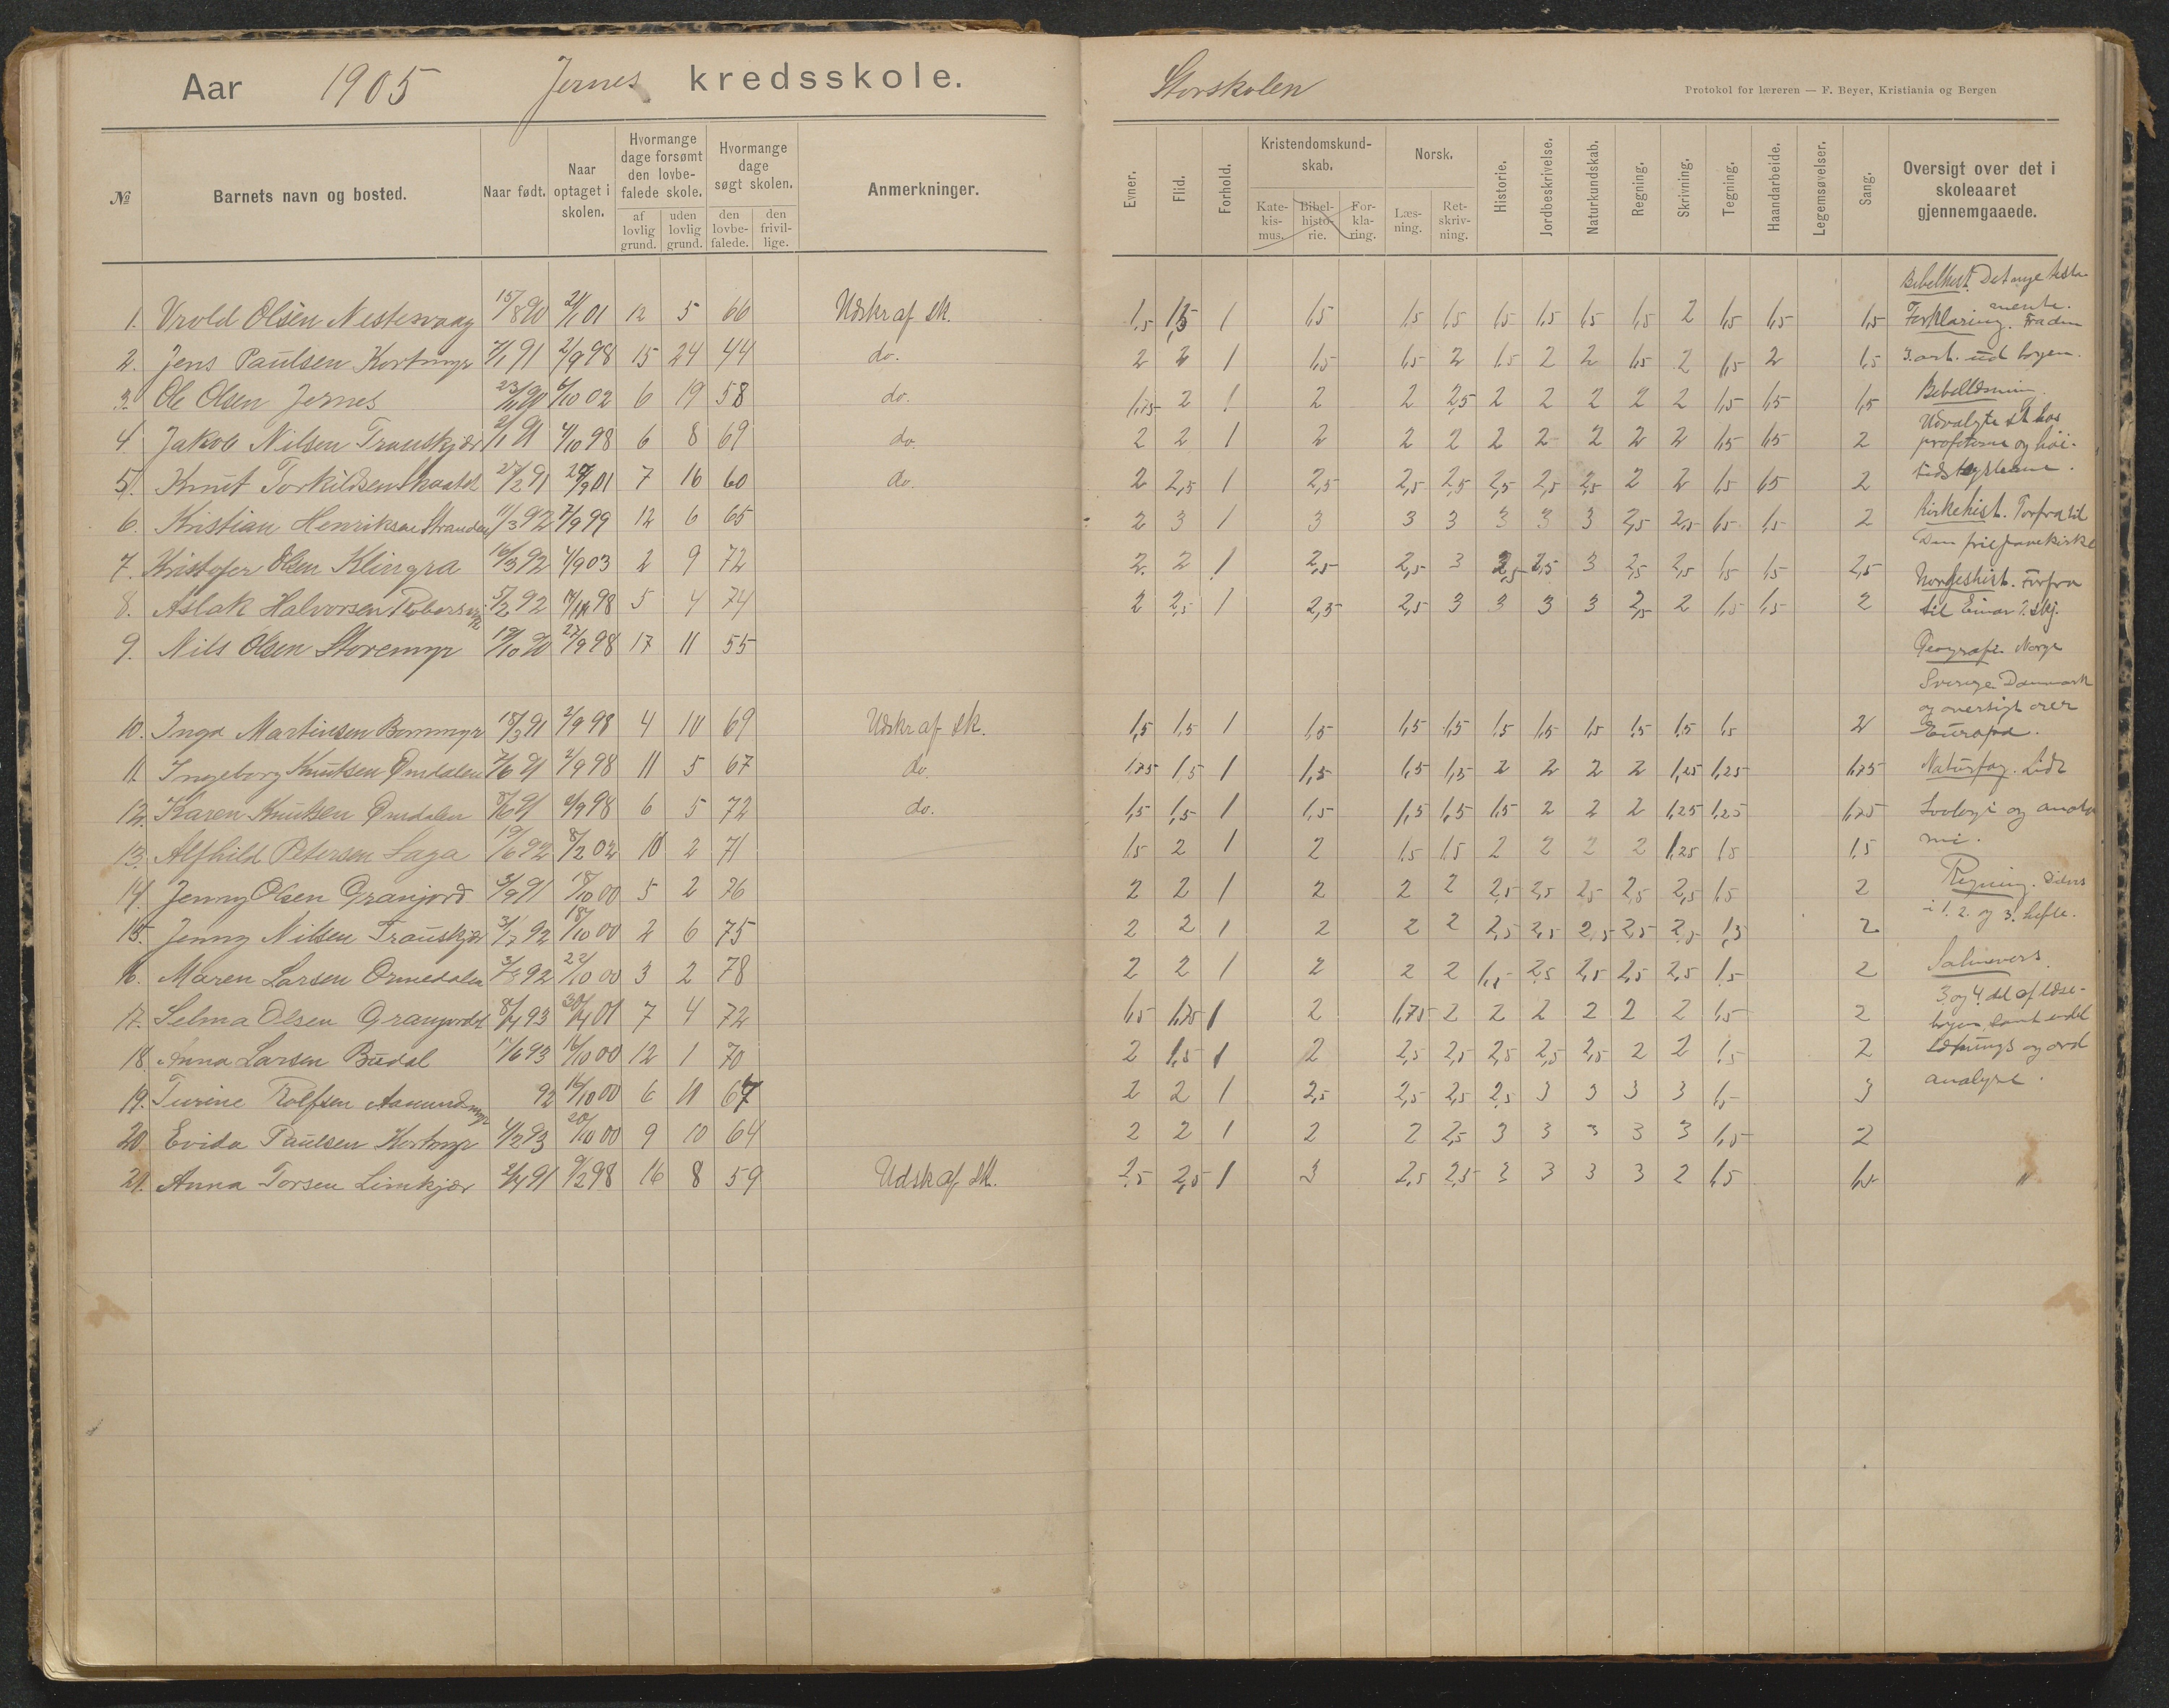 Aar 1905 Jernes kredsskole.
Storskolen
Protokol for læreren — F. Beyer, Kristiania og Bergen
№ Barnets navn og bosted. Naar født. Naar optaget i skolen. Hvormange dage forsømt den lovbefalede skole. af lovlig grund. uden lovlig grund. Hvormange dage søgt skolen. den lovbefalede. den frivillige. Anmerkninger.
Evner. Flid. Forhold. Kristendomskundskab. Katekismus. Bibelhistorie. Forklaring. Norsk. Læsning. Retskrivning. Historie. Jordbeskrivelse. Naturkundskab. Regning. Skrivning. Tegning. Haandarbeide. Legemsøvelser. Sang. Oversigt over det i skoleaaret gjennemgaaede.
1. Vrold Olsen Nestesvaag 15/8 90 2/1 01 12 5 66 Udskr af sk. 1,5 1,5 1 1,5 1,5 1,5 1,5 1,5 1,5 1,5 2 1,5 1,5 1,5
2. Jens Paulsen Kortmyr 7/1 91 2/9 98 15 24 44 do. 2 2 1 1,5 1,5 2 1,5 2 2 1,5 2 1,5 2 1,5
3. Ole Olsen Jernes 6/10 02 6 19 58 do. 1,75 2 1 2 2 2,5 2 2 2 2 2 1,5 1,5 1,5
4. Jakob Nilsen Trauskjær 2/1 91 4/10 98 6 8 69 do. 2 2 1 2 2 2 2 2 2 2 2 1,5 1,5 2
5. Knut Torkildsen 27/2 91 7 16 60 do. 2 2,5 1 2,5 2,5 2,5 2,5 2,5 2,5 2 2 1,5 1,5 2
6. Kristian Henriksen Stranden 11/3 92 7/9 99 12 6 65 2 3 1 3 3 3 3 3 3 2,5 2,5 1,5 1,5 2
7. Kristofer Olsen Klingra 16/3 92 4/9 03 2 9 72 2 2 1 2,5 2,5 3 2,5 2,5 3 2,5 2,5 1,5 1,5 2,5
8. Aslak Halvorsen 5/2 92 5 4 74 2 2,5 1 2,5 2,5 3 3 3 3 2,5 2 1,5 1,5 2
9. Nils Olsen Storemyr 19/10 90 27/9 98 17 11 55
10. Inga Martinsen Bommyr 18/3 91 2/9 98 4 10 69 Udskr af sk. 1,5 1,5 1 1,5 1,5 1,5 1,5 1,5 1,5 1,5 1,5 1,5 2
11. Ingeborg Knutsen Omdalen 7/6 91 2/9 98 11 5 67 do. 1,75 1,5 1 1,5 1,5 1,5 2 2 2 2 1,25 1,25 1,75
12. Karen Knutsen Omdalen 8/6 91 2/9 98 6 5 72 do. 1,5 1,5 1 1,5 1,5 1,5 1,5 2 2 2 1,25 1,25 1,75
13. Alfhild Petersen Laga 19/6 92 8/2 02 10 2 71 1,5 2 1 2 1,5 1,5 2 2 2 2 1,25 1,5 1,5
14. Jenny Olsen Granjord 3/9 91 18/10 00 5 2 76 2 2 1 2 2 2 2,5 2,5 2,5 2,5 2,5 1,5 2
15. Jenny Nilsen Trauskjær 31/7 92 18/10 00 2 6 75 2 2 1 2 2 2 2,5 2,5 2,5 2,5 2,5 1,5 2
16. Maren Larsen Ormedalen 92 22/10 00 3 2 78 2 2 1 2 2 2 1,5 2,5 2,5 2,5 2,5 1,5 2
17. Selma Olsen Granjordet 8/4 93 30/4 01 7 4 72 1,5 1,75 1 2 1,75 2 2 2 2 2 2 1,5 2
18. Anna Larsen Budal 17/6 93 16/10 00 12 1 70 2 1,5 1 2 2,5 2,5 2,5 2,5 2,5 2 2 1,5 2
19. Turine Rolfsen Aamundsmyr 92 16/10 00 6 11 67 2 2 1 2,5 2,5 2,5 2,5 3 3 3 3 1,5 3
20. Evida Paulsen Kortmyr 4/2 93 20/10 00 9 10 64 2 2 1 2 2 2,5 3 3 3 3 3 1,5 2
21. Anna Torsen Limkjær 2/4 91 9/2 98 16 8 59 Udsk af sk. 2,5 2,5 1 3 2,5 2,5 3 3 3 3 2 1,5 1,5 "
Bibelhist. Det nye testa-
mente.
Forklaring. Fra den
3. art. ud bogen.
Bibellæsning
Udvalgte st. hos
profeterne og høi-
tidstexterne.
Kirkehist. Forfra til
Den frie
Norgeshist. Forfra
til Einar
Geografi. Norge
Sverige Danmark
og oversigt over
Europa.
Naturfag. Lidt
zoologi og anato
mi.
Regning. Sidens
i 1. 2. og 3. hefte.
Salmevers.
3 og 4 del af læse-
bogen samt endel
sætnings og ord
analyse.